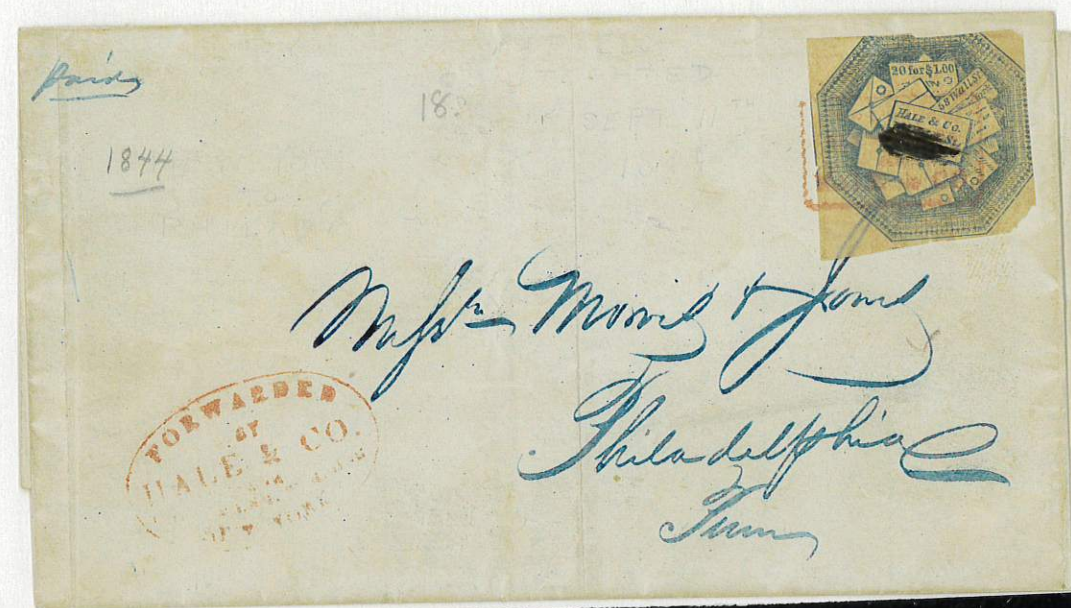 Paid
1844
18
20 for $1.00
58 Wall St.
HALE & Co.
St.
Messrs Morris & Jones
Philadelphia
Penn
FORWARDED
BY
HALE & CO.
NEW YORK